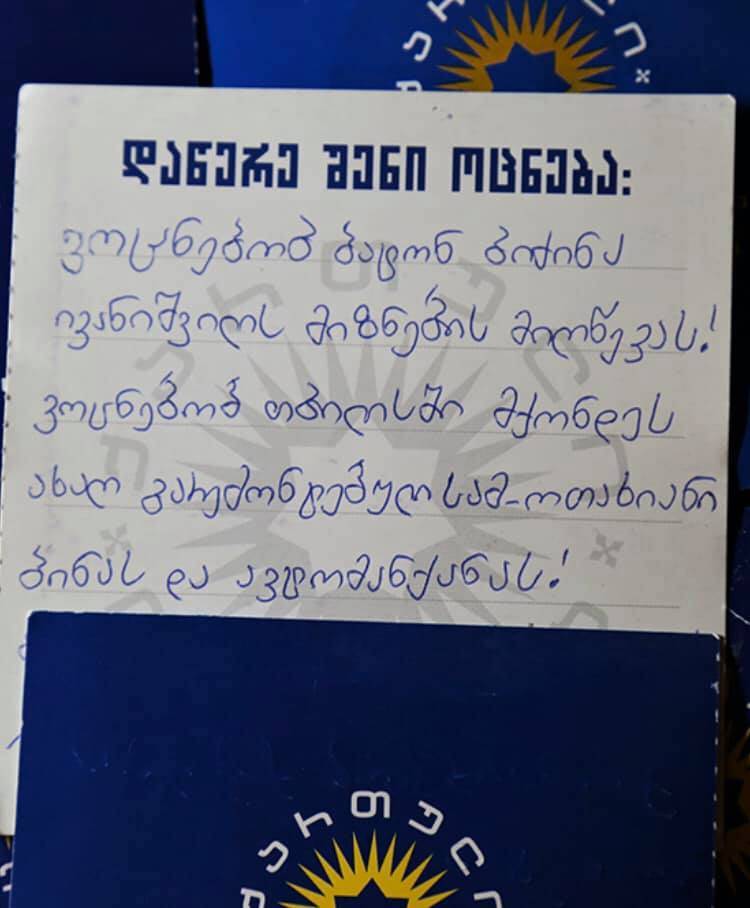 ქართული
დაწერე შენი ოცნება:
ვოცნებობ ბატონ ბიძინა
ივანიშვილს მიზნების მიღწევას!
ვოცნებობ თბილისში მქონდეს
ახალ გარემონტებულ სამ-ოთახიანი
ბინას და ავტომანქანას!
ქართული